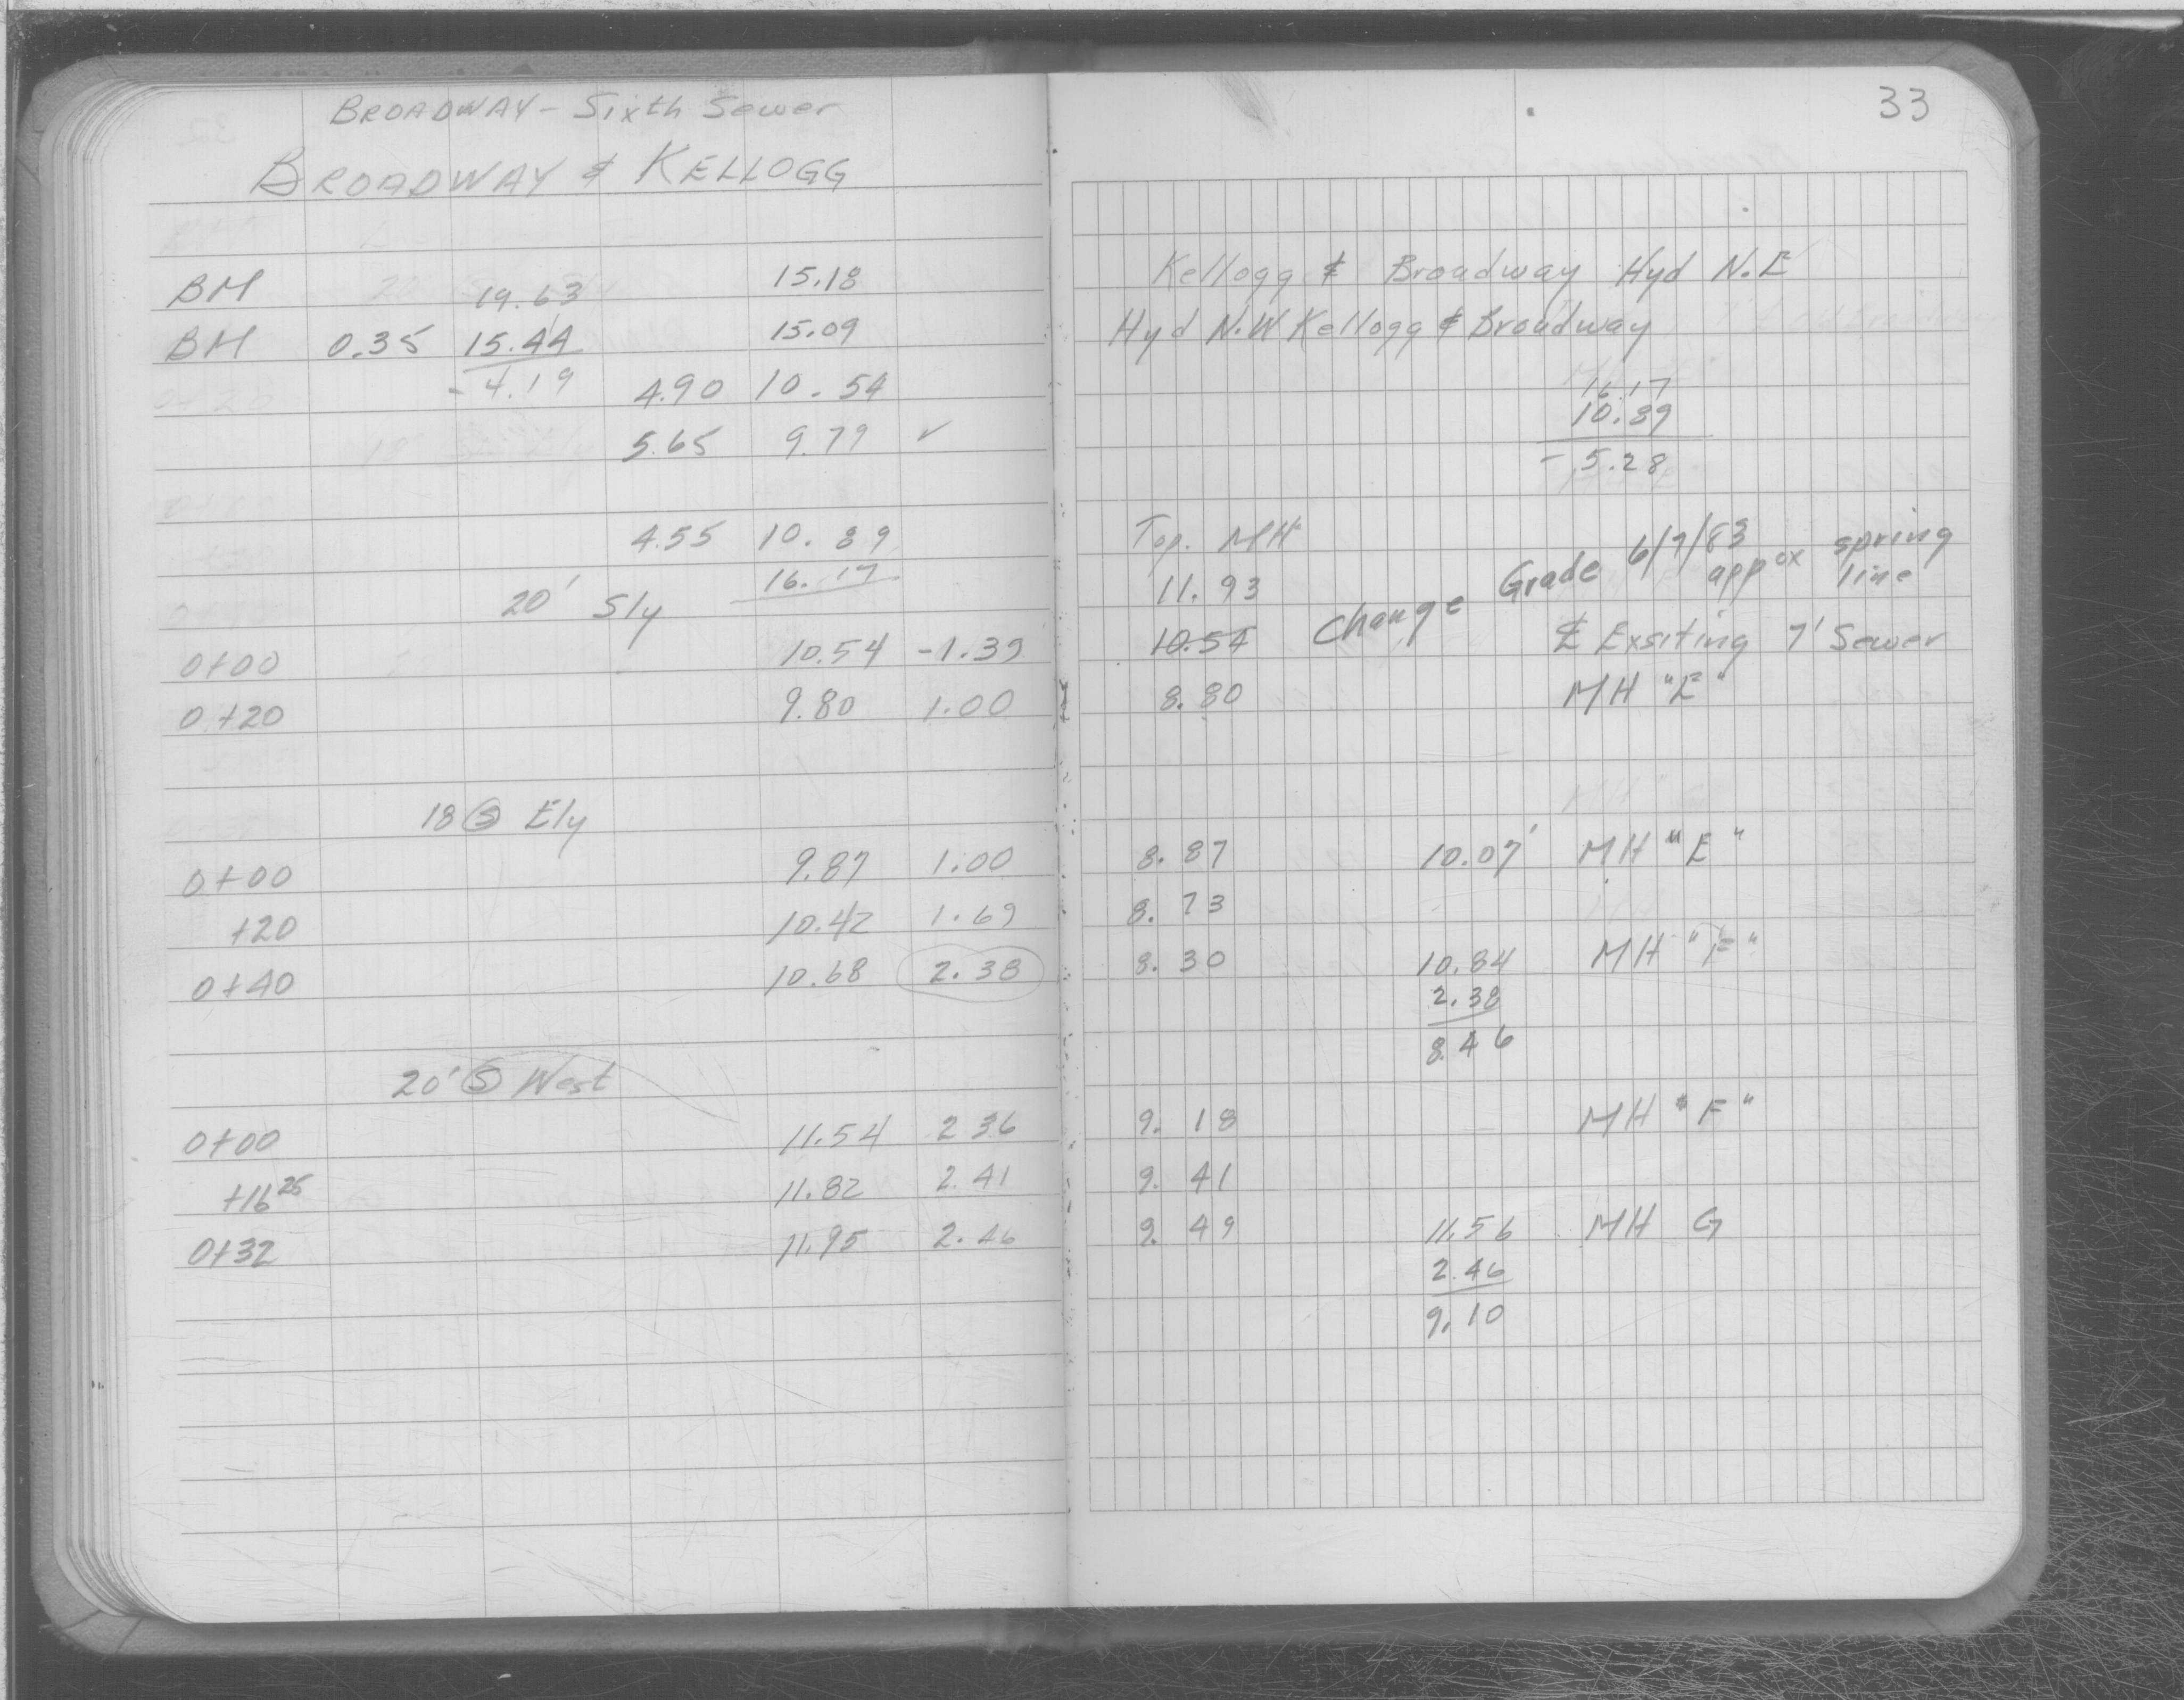 BROADWAY - Sixth Sewer
BROADWAY & KELLOGG
BM 15.18
19.63
BM 0.35 15.44 15.09
- 4.19 4.90 10.54
5.65 9.79 ✓
4.55 10.89
16.17
20' Sly
0+00 10.54 -1.39
0+20 9.80 1.00
18 Ⓢ Ely
0+00 9.87 1.00
+20 10.42 1.69
0+40 10.68 2.38
20' Ⓢ West
0+00 11.54 2 36
+16 25 11.82 2.41
0+32 11.95 2.46
33
Kellogg & Broadway Hyd N.E
Hyd N.W Kellogg & Broadway
16.17
10.89
- 5.28
Top. MH
11.93 Change Grade 6/7/83 appox spring line
10.54 ℄ Exsiting 7' Sewer
8.80 MH "E"
8.87 10.07' MH "E"
8.73
8.30 10.84 MH "F"
2.38
8.46
9.18 MH "F"
9.41
9.49 11.56 MH G
2.46
9.10